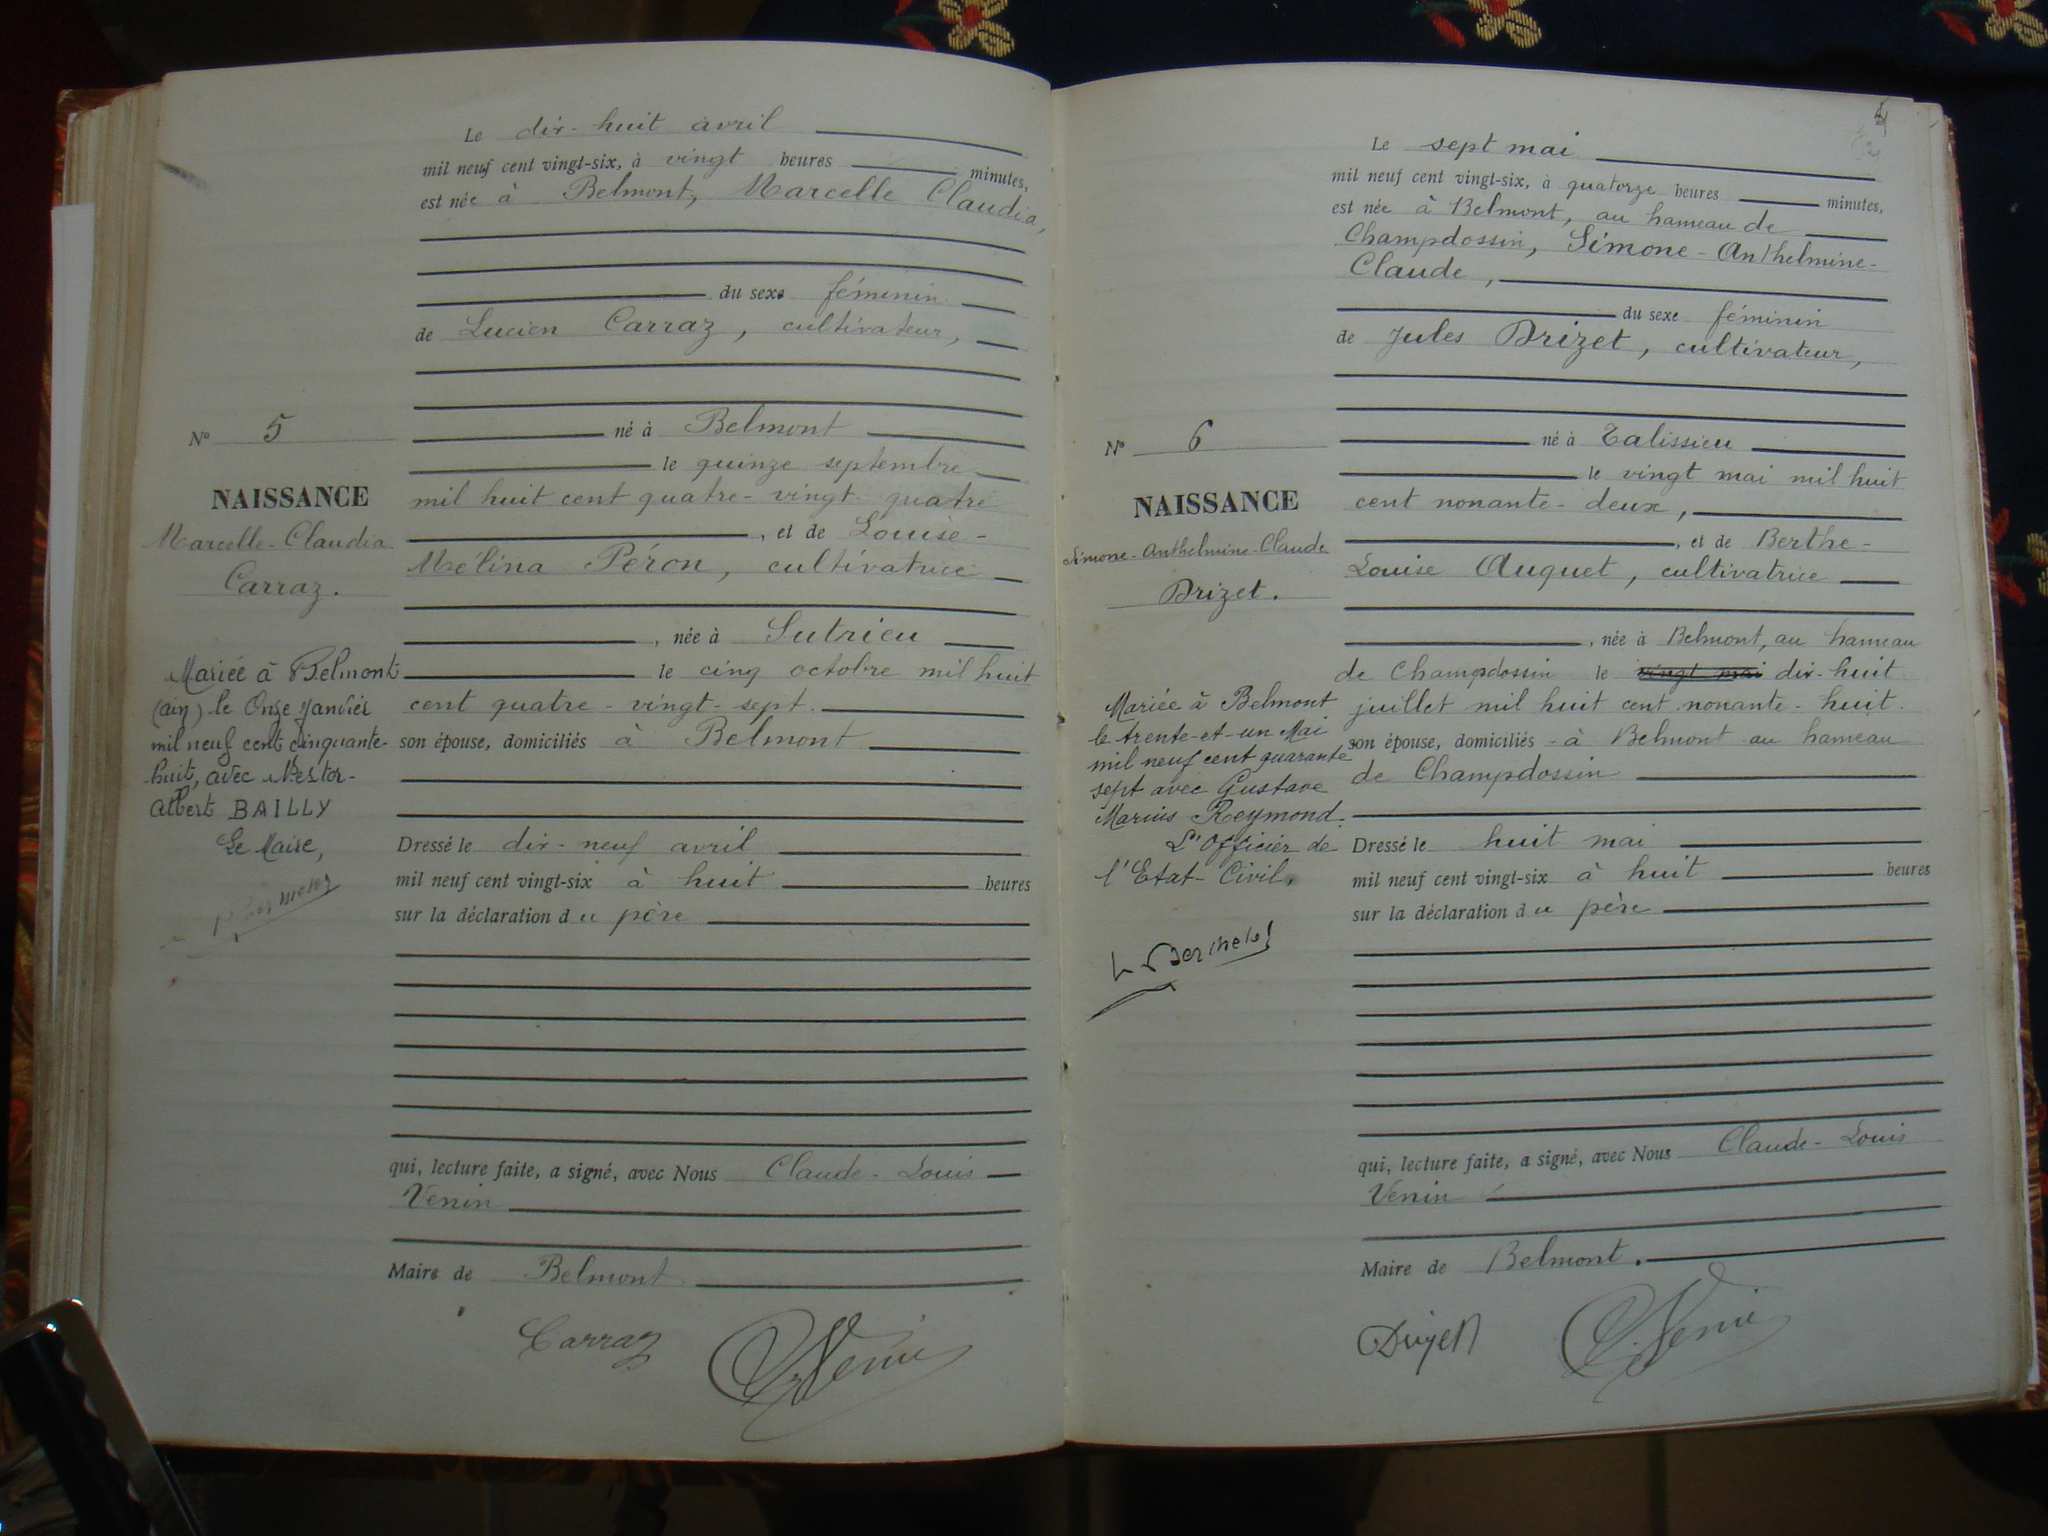 Le dix-huit avril
mil neuf cent vingt-six, à vingt heures minutes,
est née à Belmont, Marcelle Claudia,
du sexe féminin
de Lucien Carraz, cultivateur,
né à Belmont
le quinze septembre
mil huit cent quatre-vingt-quatre
, et de Louise-
Mélina Péron, cultivatrice
, née à Sutrieu
le cinq octobre mil huit
cent quatre-vingt-sept.
son épouse, domiciliés à Belmont
Dressé le dix-neuf avril
mil neuf cent vingt-six à huit heures
sur la déclaration du père
qui, lecture faite, a signé, avec Nous Claude-Louis
Venin
Maire de Belmont
Carraz
Venin
N° 5
NAISSANCE
Marcelle-Claudia
Carraz.
Mariée à Belmont
(ain) le Onze Janvier
mil neuf cent cinquante-
huit, avec Nestor-
Albert BAILLY
Le Maire,
Le sept mai
mil neuf cent vingt-six, à quatorze heures minutes,
est née à Belmont, au hameau de
Champdossin, Simone-Anthelmine-
Claude,
du sexe féminin
de Jules Drizet, cultivateur,
né à Talissieu
le vingt mai mil huit
cent nonante-deux,
, et de Berthe-
Louise Auguet, cultivatrice
, née à Belmont, au hameau
de Champdossin le vingt mai dix-huit
juillet mil huit cent nonante-huit.
son épouse, domiciliés à Belmont au hameau
de Champdossin
Dressé le huit mai
mil neuf cent vingt-six à huit heures
sur la déclaration du père
qui, lecture faite, a signé, avec Nous Claude-Louis
Venin
Maire de Belmont.
Drizet
Venin
N° 6
NAISSANCE
Simone-Anthelmine-Claude
Drizet.
Mariée à Belmont
le trente-et-un Mai
mil neuf cent quarante
sept avec Gustave
Marius Reymond.
L'Officier de
l'Etat-Civil,